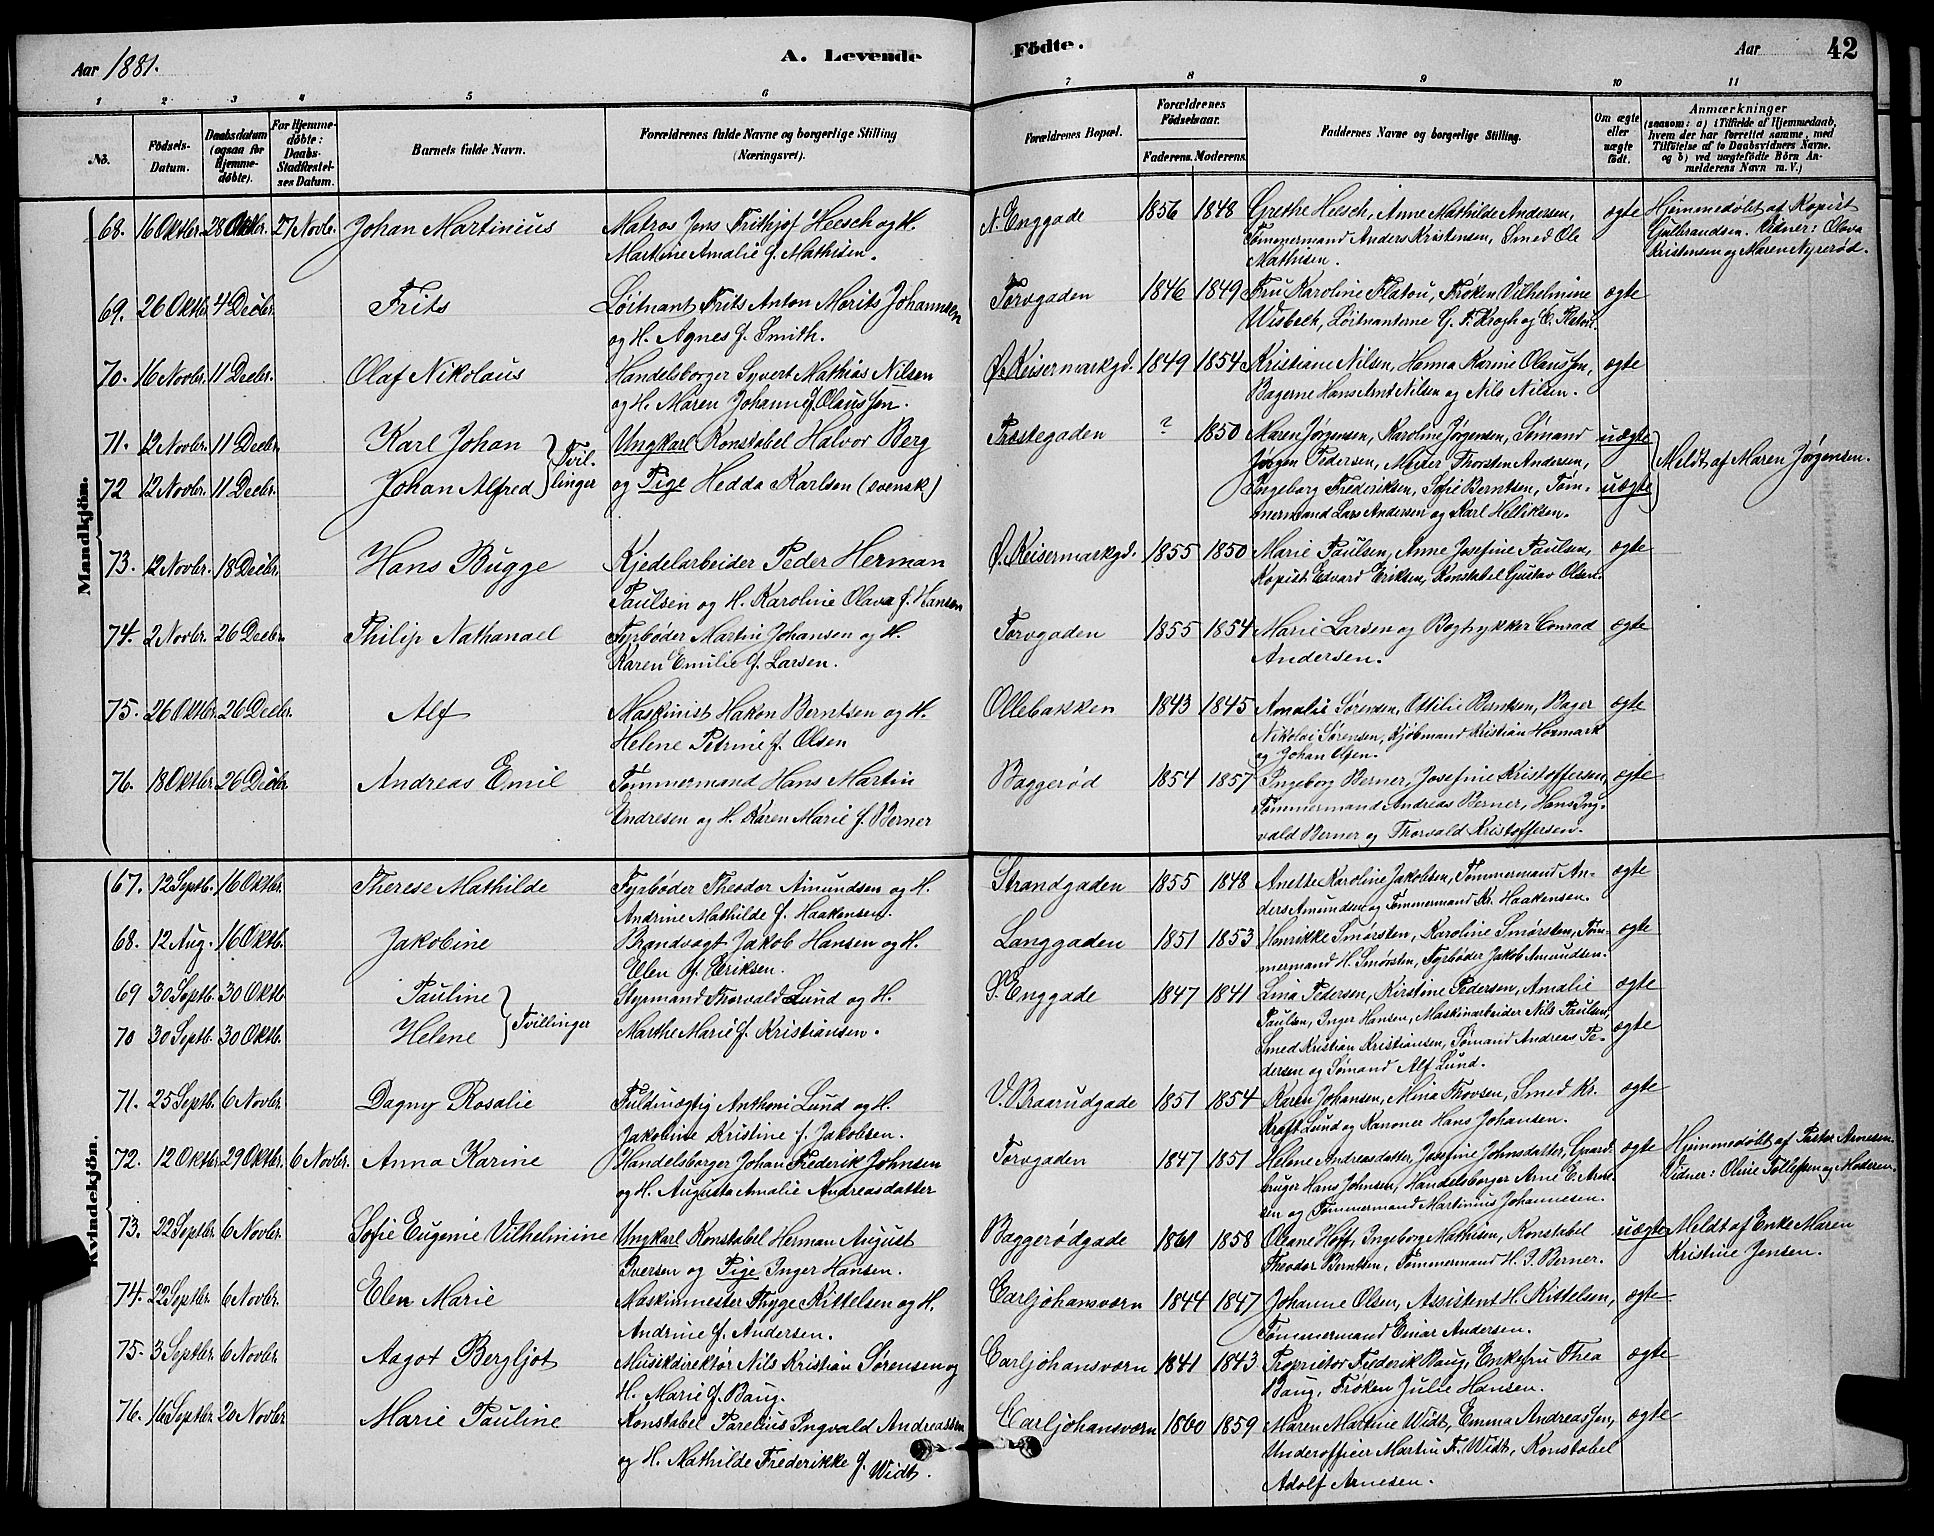 Aar 1881.
A. Levende
Födte.
Aar
42
1 2 3 4 5 6 7 8 9 10 11
No.
Födsels-Datum.
Daabsdatum (ogsaa for Hjemme-döbte).
For Hjemme-döbte: Daabs-Stadfæstel-ses Datum.
Barnets fulde Navn.
Forældrenes fulde Navne og borgerlige Stilling (Næringsvei).
Forældrenes Bopæl.
Forældrenes Födselsaar.
Faderens. Moderens.
Faddernes Navne og borgerlige Stilling.
Om ægte eller uægte födt.
Anmærkninger (saasom: a) i Tilfælde af Hjemmedaab, hvem der har forrettet samme, med Tilföielse af to Daabsvidners Navne. og b) ved uægtefödte Börn An-melderens Navn m. V.)
Mandkjön.
68. 16 Oktbr. 28 Oktbr. 27 Novbr. Johan Martinius Matros Jens Frithjof Heesch og H. N. Enggade 1856 1848 Grethe Heesch, Anne Mathilde Andersen, ægte Hjemmedøbt af Kopist
Martine Amalie f. Mathisen. Tømmermand Anders Kristensen, Smed Ole Gulbrandsen. Vidner: Olava
Mathisen. Kristensen og Maren Nyrerød.
69. 26 Oktbr. 4 Decbr. Frits Løitnant Frits Anton Morits Johannsen Torvgaden 1846 1849 Fru Karoline Flatou, Frøken Vilhelmine ægte
og H. Agnes f. Smith. Wisbech, Løitnanterne G. F. Krogh og C. Platou.
70. 16 Novbr. 11 Decbr. Olaf Nikolaus Handelsborger Syvert Mathias Nilsen Ø. Keisermarkgd. 1849 1854 Kristiane Nilsen, Hanna Karine Olaussen, ægte
og H. Maren Johanne f. Olaussen. Bagerne Hans Arnt Nilsen og Nils Nilsen.
71. 12 Novbr. 11 Decbr. Karl Johan } Tvil- Ungkarl Konstabel Halvor Berg Præstegaden ? 1850 Maren Jørgensen, Karoline Jørgensen, Sømand uægte } Meldt af Maren Jørgensen.
Jørgen Pedersen, Thorsten Andersen,
72 12 Novbr. 11 Decbr. Johan Alfred } linger og Pige Hedda Karlsen (svensk) Ingeborg Frederiksen, Sofie Berntsen, Tøm- uægte
mermand Lars Andersen og Karl Helliksen.
73. 12 Novbr. 18 Decbr. Hans Bugge Kjedelarbeider Peder Herman Ø. Keisermarkgd. 1855 1850 Marie Paulsen, Anne Josefine Paulsen, ægte
Paulsen og H. Karoline Olava f. Hansen Kopist Edvard Eriksen, Konstabel Gustav Olsen.
74. 2 Novbr. 26 Decbr. Philip Nathanael Fyrbøder Martin Johansen og H. Torvgaden 1855 1854 Marie Larsen og Bogtrykker Conrad ægte
Karen Emilie f. Larsen. Andersen.
75. 26 Oktbr. 26 Decbr. Alf Maskinist Hakon Berntsen og H. Ollebakken 1843 1845 Amalie Sørensen, Ottilie Berntsen, Bager ægte
Helene Petrine f. Olsen Nikolai Sørensen, Kjøbmand Kristian Hoxmark
og Johan Olsen.
76. 18 Oktbr. 26 Decbr. Andreas Emil Tømmermand Hans Martin Baggerød 1854 1857 Ingeborg Berner, Josefine Kristoffersen, ægte
Endresen og H. Karen Marie f. Berner Tømmermand Andreas Berner, Hans Ing-
vald Berner og Thorvald Kristoffersen.
Kvindekjön.
67. 12 Septb. 16 Oktbr. Therese Mathilde Fyrbøder Theodor Amundsen og H. Strandgaden 1855 1848 Anette Karoline Jakobsen, Tømmermand An- ægte
Andrine Mathilde f. Haakensen. ders Amundsen og Tømmermand Kr. Haakensen.
68. 12 Aug. 16 Oktb. Jakobine Brandvagt Jakob Hansen og H. Langgaden 1851 1853 Henrikke Smørsten, Karoline Smørsten, Tøm- ægte
Elen f. Eriksen. mermand H. Smørsten, Fyrbøder Jakob Amundsen.
69 30 Septb. 30 Oktb. Pauline } Styrmand Thorvald Lund og H. S. Enggade 1847 1841 Lina Pedersen, Kirstine Pedersen, Amalie ægte
Paulsen, Inger Hansen, Maskinarbeider Nils Paulsen,
70 30 Septb. 30 Oktb. Helene } Tvillinger Marthe Marie f. Kristiansen. Smed Kristian Kristiansen, Sømand Andreas Pe- ægte
dersen og Sømand Alf Lund.
71. 25 Septb. 6 Novbr. Dagny Rosalie Fuldmægtig Anthoni Lund og H. V. Braarudgade 1851 1854 Karen Johansen, Mina Thovsen, Smed Kr. ægte
Jakobine Kristine f. Jakobsen. Kraft Lund og Kanoner Hans Johansen.
72. 12 Oktb. 29 Oktbr. 6 Novbr. Anna Karine Handelsborger Johan Frederik Johnsen Torvgaden 1847 1851 Helene Andreasdatter, Josefine Johnsdatter, Gaard- ægte Hjemmedøbt af Pastor Arnesen.
og H. Augusta Amalie Andreasdatter bruger Hans Johnsen, Handelsborger Arne E. Arne- Vidner: Olive Tollefsen og Moderen.
sen og Tømmermand Martinius Johannesen.
73. 22 Septbr. 6 Novbr. Sofie Eugenie Vilhelmine Ungkarl Konstabel Herman August Baggerødgade 1861 1858 Oleane Hoff, Ingeborg Mathisen, Konstabel uægte Meldt af Enke Maren
Iversen og Pige Inger Hansen. Theodor Berntsen, Tømmermand H. J. Berner. Kristine Jensen.
74. 22 Septbr. 6 Novbr. Elen Marie Maskinmester Thyge Kittelsen og H. Carljohansværn 1844 1847 Johanne Olsen, Assistent H. Kittelsen, ægte
Andrine f. Andersen. Tømmermand Einar Andersen.
75. 3 Septbr. 6 Novbr. Aagot Bergljot Musikdirektør Nils Kristian Sørensen og Carljohansværn 1841 1843 Proprietør Frederik Baug, Enkefru Thea ægte
H. Marie f. Baug. Baug, Frøken Julie Hansen.
76. 16 Septbr. 20 Novbr. Marie Pauline Konstabel Parelius Ingvald Andreassen Carljohansværn 1860 1859 Maren Martine Widt, Emma Andreassen, ægte
og H. Mathilde Frederikke f. Widt. Underofficer Martin F. Widt, Konstabel
Adolf Arnesen.